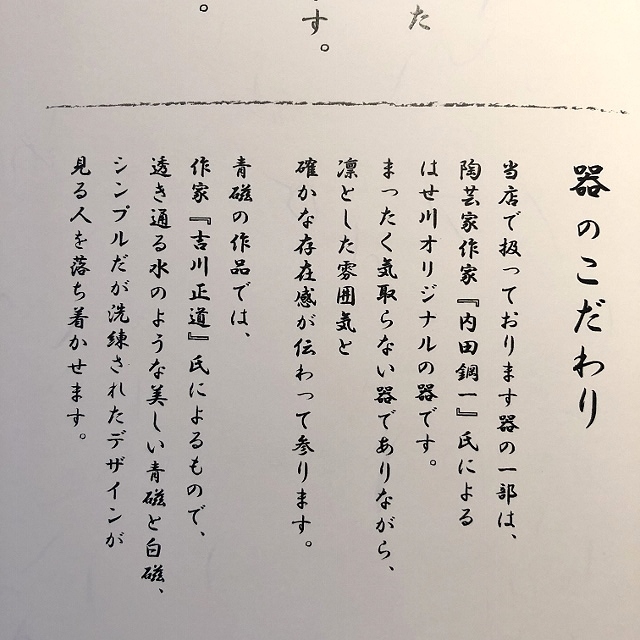 た
す。
。
器のこだわり
当店で扱っております器の一部は、
陶芸家作家『内田鋼一』氏による
はせ川オリジナルの器です。
まったく気取らない器でありながら、
凛とした雰囲気と
確かな存在感が伝わって参ります。
青磁の作品では、
作家『吉川正道』氏によるもので、
透き通る水のような美しい青磁と白磁、
シンプルだが洗練されたデザインが
見る人を落ち着かせます。